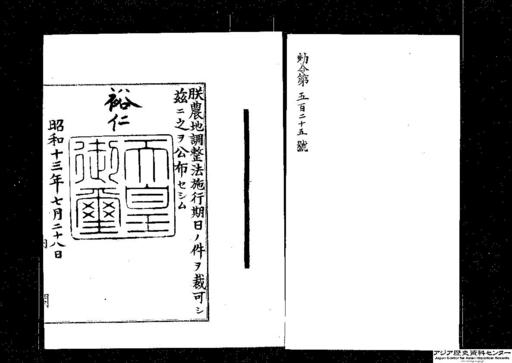 勅令第五百二十五號
朕農地調整法施行期日ノ件ヲ裁可シ
茲ニ之ヲ公布セシム
裕仁
天皇
御璽
昭和十三年七月二十八日
内閣
アジア歴史資料センター
Japan Center for Asian Historical Records